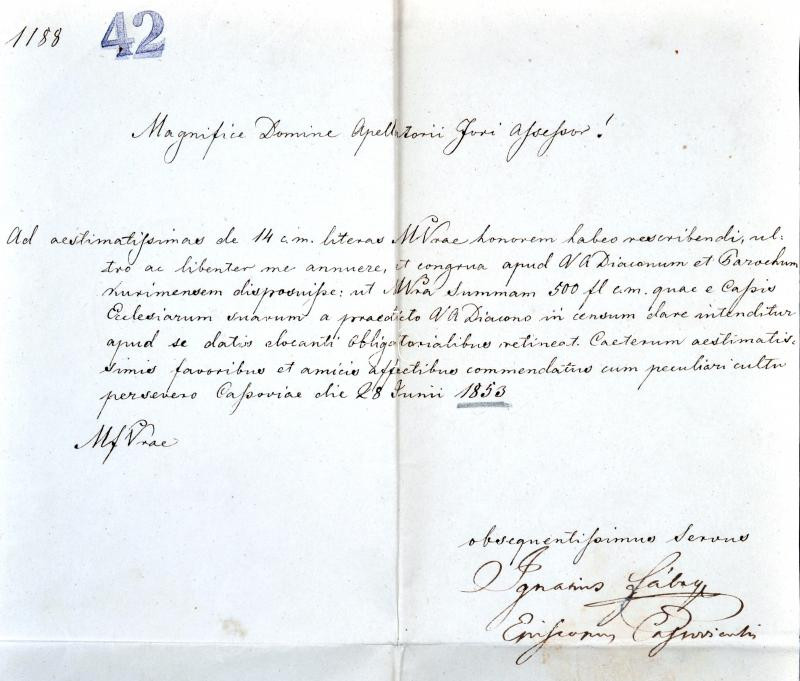 1188 42
Magnifice Domine Apellatorii Fori Assessor!
Ad aestimatissimas de 14 c.m. literas M Vrae honorem habeo rescribendi, ul-
tro ac libenter me annuere, et congrua apud VADiaconum et Parochum
Kurimensem disposuisse: ut MVra Summam 500 fl c.m. quae e Cassis
Ecclesiarum suarum a praedicto VADiacono in censum dare intenditur
apud se datis elocanti obligatorialibus retineat. Caeterum aestimatis-
simis favoribus et amicis affectibus commendatus cum peculiari cultu
persevero Cassoviae die 28 Junii 1853
Mf Vrae
obsequentissimus servus
Ignatius Fábry
Episcopus Cassoviensis